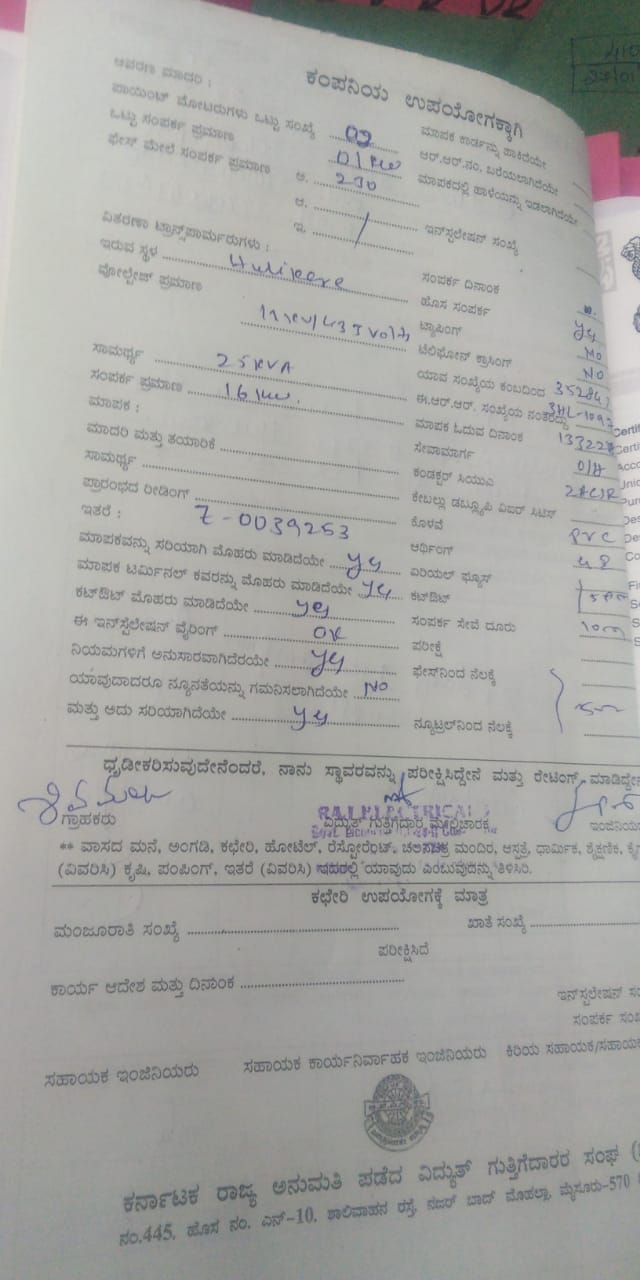 ಕಂಪನಿಯ ಉಪಯೋಗಕ್ಕಾಗಿ
ಆವರಣ ಮಾದರಿ :
ಪಾಯಿಂಟ್ ಮೋಟರುಗಳು ಒಟ್ಟು ಸಂಖ್ಯೆ 02
ಒಟ್ಟು ಸಂಪರ್ಕ ಪ್ರಮಾಣ 01 KW
ಫೇಸ್ ಮೇಲೆ ಸಂಪರ್ಕ ಪ್ರಮಾಣ ಆ. 230
ಆ.
ಇ.
ವಿತರಣಾ ಟ್ರಾನ್ಸ್‌ಪಾರ್ಮರುಗಳು :
ಇರುವ ಸ್ಥಳ Hulikere
ವೋಲ್ಟೇಜ್ ಪ್ರಮಾಣ 11KV/433 Volts
ಸಾಮರ್ಥ್ಯ 25 KVA
ಸಂಪರ್ಕ ಪ್ರಮಾಣ 16 KW.
ಮಾಪಕ :
ಮಾದರಿ ಮತ್ತು ತಯಾರಿಕೆ
ಸಾಮರ್ಥ್ಯ
ಪ್ರಾರಂಭದ ರೀಡಿಂಗ್
ಇತರೆ : 7-0039253
ಮಾಪಕವನ್ನು ಸರಿಯಾಗಿ ಮೊಹರು ಮಾಡಿದೆಯೇ yes
ಮಾಪಕ ಟರ್ಮಿನಲ್ ಕವರನ್ನು ಮೊಹರು ಮಾಡಿದೆಯೇ yes
ಕಟ್‌ಔಟ್ ಮೊಹರು ಮಾಡಿದೆಯೇ yes
ಈ ಇನ್‌ಸ್ಟೆಲೇಷನ್ ವೈರಿಂಗ್ OK
ನಿಯಮಗಳಿಗೆ ಅನುಸಾರವಾಗಿದೆರಯೇ yes
ಯಾವುದಾದರೂ ನ್ಯೂನತೆಯನ್ನು ಗಮನಿಸಲಾಗಿದೆಯೇ NO
ಮತ್ತು ಅದು ಸರಿಯಾಗಿದೆಯೇ yes
ಮಾಪಕ ಕಾರ್ಡನ್ನು ಹಾಕಿದೆಯೇ
ಆರ್.ಆರ್.ನಂ. ಬರೆಯಲಾಗಿದೆಯೇ
ಮಾಪಕದಲ್ಲಿ ಹಾಳೆಯನ್ನು ಇಡಲಾಗಿದೆಯೇ
ಇನ್‌ಸ್ಟಲೇಷನ್ ಸಂಖ್ಯೆ
ಸಂಪರ್ಕ ದಿನಾಂಕ
ಹೊಸ ಸಂಪರ್ಕ
ಟ್ಯಾಪಿಂಗ್ yes
ಟೆಲಿಫೋನ್ ಕ್ರಾಸಿಂಗ್ NO
ಯಾವ ಸಂಖ್ಯೆಯ ಕಂಬದಿಂದ NO
ಈ.ಆರ್.ಆರ್. ಸಂಖ್ಯೆಯ ನಂತರದ್ದು
ಮಾಪಕ ಓದುವ ದಿನಾಂಕ
ಸೇವಾಮಾರ್ಗ O/H
ಕಂಡಕ್ಟರ್ ಸಿಯುಎ
ಕೇಬಲ್ಲು ಡಬ್ಲ್ಯೂಪಿ ವಿಐರ್ ಸಿಟಿಸ್
ಕೊಳವೆ PVC
ಆರ್ಥಿಂಗ್
ಏರಿಯಲ್ ಫ್ಯೂಸ್
ಕಟ್‌ಔಟ್
ಸಂಪರ್ಕ ಸೇವೆ ದೂರು
ಪರೀಕ್ಷೆ
ಫೇಸ್‌ನಿಂದ ನೆಲಕ್ಕೆ
ನ್ಯೂಟ್ರಲ್‌ನಿಂದ ನೆಲಕ್ಕೆ
ಧೃಡೀಕರಿಸುವುದೇನೆಂದರೆ, ನಾನು ಸ್ಥಾವರವನ್ನು ಪರೀಕ್ಷಿಸಿದ್ದೇನೆ ಮತ್ತು ರೇಟಿಂಗ್ ಮಾಡಿದ್ದೇನೆ
ಗ್ರಾಹಕರು ವಿದ್ಯುತ್ ಗುತ್ತಿಗೆದಾರ ಮೇಲ್ವಿಚಾರಕ
** ವಾಸದ ಮನೆ, ಅಂಗಡಿ, ಕಛೇರಿ, ಹೋಟೆಲ್, ರೆಸ್ಟೋರೆಂಟ್, ಚಲನಚಿತ್ರ ಮಂದಿರ, ಆಸ್ಪತ್ರೆ, ಧಾರ್ಮಿಕ, ಶೈಕ್ಷಣಿಕ,
(ವಿವರಿಸಿ) ಕೃಷಿ, ಪಂಪಿಂಗ್, ಇತರೆ (ವಿವರಿಸಿ) ಇದರಲ್ಲಿ ಯಾವುದು ಎಂಬುವುದನ್ನು ತಿಳಿಸಿರಿ.
ಕಛೇರಿ ಉಪಯೋಗಕ್ಕೆ ಮಾತ್ರ
ಮಂಜೂರಾತಿ ಸಂಖ್ಯೆ ಖಾತೆ ಸಂಖ್ಯೆ
ಪರೀಕ್ಷಿಸಿದೆ
ಕಾರ್ಯ ಆದೇಶ ಮತ್ತು ದಿನಾಂಕ
ಇನ್‌ಸ್ಟಲೇಷನ್
ಸಂಪರ್ಕ
ಸಹಾಯಕ ಇಂಜಿನಿಯರು ಸಹಾಯಕ ಕಾರ್ಯನಿರ್ವಾಹಕ ಇಂಜಿನಿಯರು ಕಿರಿಯ ಸಹಾಯಕ/ಸಹಾಯಕ
ಕರ್ನಾಟಕ ರಾಜ್ಯ ಅನುಮತಿ ಪಡೆದ ವಿದ್ಯುತ್ ಗುತ್ತಿಗೆದಾರರ ಸಂಘ
ನಂ.445, ಹೊಸ ನಂ. ಎನ್-10, ಶಾಲಿವಾಹನ ರಸ್ತೆ, ನಜರ್ ಬಾದ್ ಮೊಹಲ್ಲಾ, ಮೈಸೂರು-570